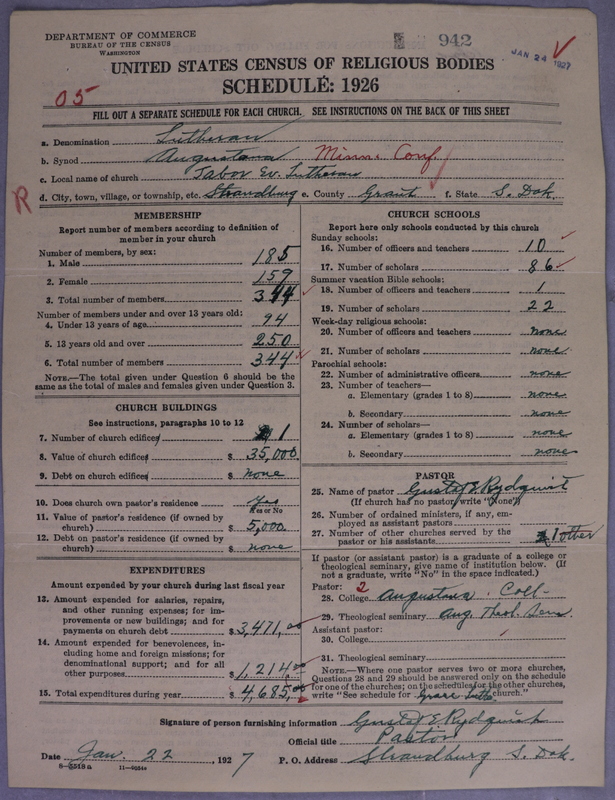 DEPARTMENT OF COMMERCE
BUREAU OF THE CENSUS
WASHINGTON
942
JAN 24 1927
UNITED STATES CENSUS OF RELIGIOUS BODIES
SCHEDULE: 1926
05
FILL OUT A SEPARATE SCHEDULE FOR EACH CHURCH. SEE INSTRUCTIONS ON THE BACK OF THIS SHEET
a. Denomination Lutheran
b. Synod Augustana Minn. Conf.
c. Local name of church Tabor Ev. Lutheran
R d. City, town, village, or township, etc. Strandburg e. County Grant f. State S. Dak.
MEMBERSHIP
Report number of members according to definition of member in your church
Number of members, by sex:
1. Male 185
2. Female 159
3. Total number of members 344
Number of members under and over 13 years old:
4. Under 13 years of age 94
5. 13 years old and over 250
6. Total number of members 344
NOTE.—The total given under Question 6 should be the same as the total of males and females given under Question 3.
CHURCH BUILDINGS
See instructions, paragraphs 10 to 12
7. Number of church edifices 1
8. Value of church edifices $ 35,000
9. Debt on church edifices $ none
10. Does church own pastor's residence Yes
Yes or No
11. Value of pastor's residence (if owned by church) $ 5,000
12. Debt on pastor's residence (if owned by church) $ none
EXPENDITURES
Amount expended by your church during last fiscal year
13. Amount expended for salaries, repairs, and other running expenses; for improvements or new buildings; and for payments on church debt $ 3,471.00
14. Amount expended for benevolences, including home and foreign missions; for denominational support; and for all other purposes $ 1,214.00
15. Total expenditures during year $ 4,685.00
CHURCH SCHOOLS
Report here only schools conducted by this church
Sunday schools:
16. Number of officers and teachers 10
17. Number of scholars 86
Summer vacation Bible schools:
18. Number of officers and teachers 1
19. Number of scholars 22
Week-day religious schools:
20. Number of officers and teachers none
21. Number of scholars none
Parochial schools:
22. Number of administrative officers none
23. Number of teachers—
a. Elementary (grades 1 to 8) none
b. Secondary none
24. Number of scholars—
a. Elementary (grades 1 to 8) none
b. Secondary none
PASTOR
25. Name of pastor Gustaf E Rydquist
(If church has no pastor, write "None")
26. Number of ordained ministers, if any, employed as assistant pastors
27. Number of other churches served by the pastor or his assistants 1 other
If pastor (or assistant pastor) is a graduate of a college or theological seminary, give name of institution below. (If not a graduate, write "No" in the space indicated.)
Pastor: 2
28. College Augustana Coll.
29. Theological seminary Aug. Theol. Sem.
Assistant pastor:
30. College
31. Theological seminary
NOTE.—Where one pastor serves two or more churches, Questions 28 and 29 should be answered only on the schedule for one of the churches; on the schedules for the other churches, write "See schedule for Grace Luth church."
Signature of person furnishing information Gustaf E Rydquist
Official title Pastor
Date Jan. 22, 1927 P. O. Address Strandburg S. Dak.
8-5518a 11-9554